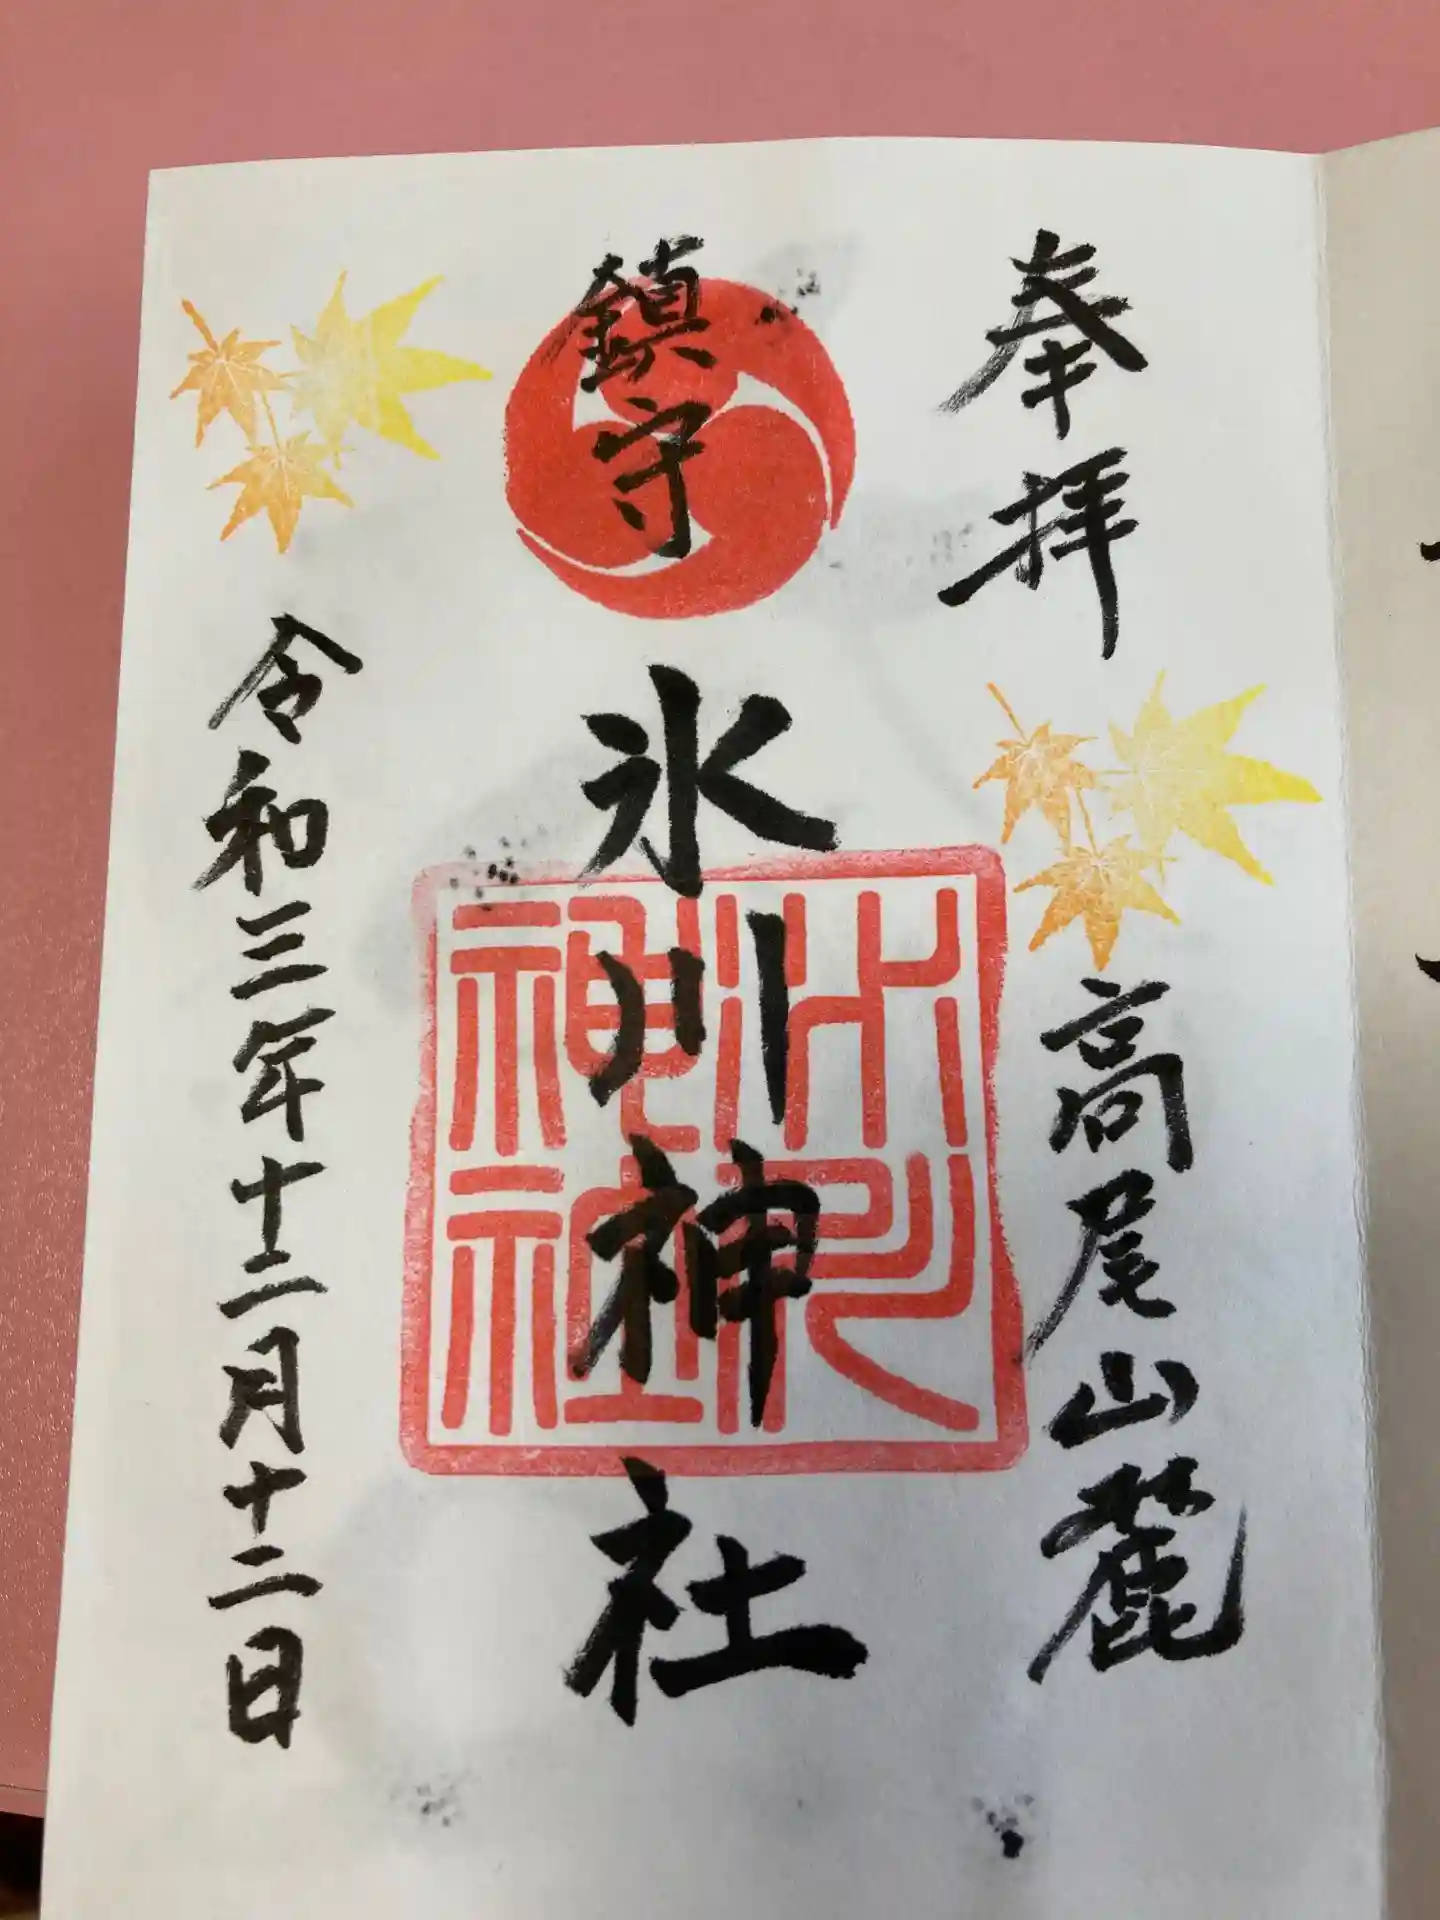 奉拝
高尾山麓
鎮守
氷川神社
氷川神社
令和三年十二月十二日